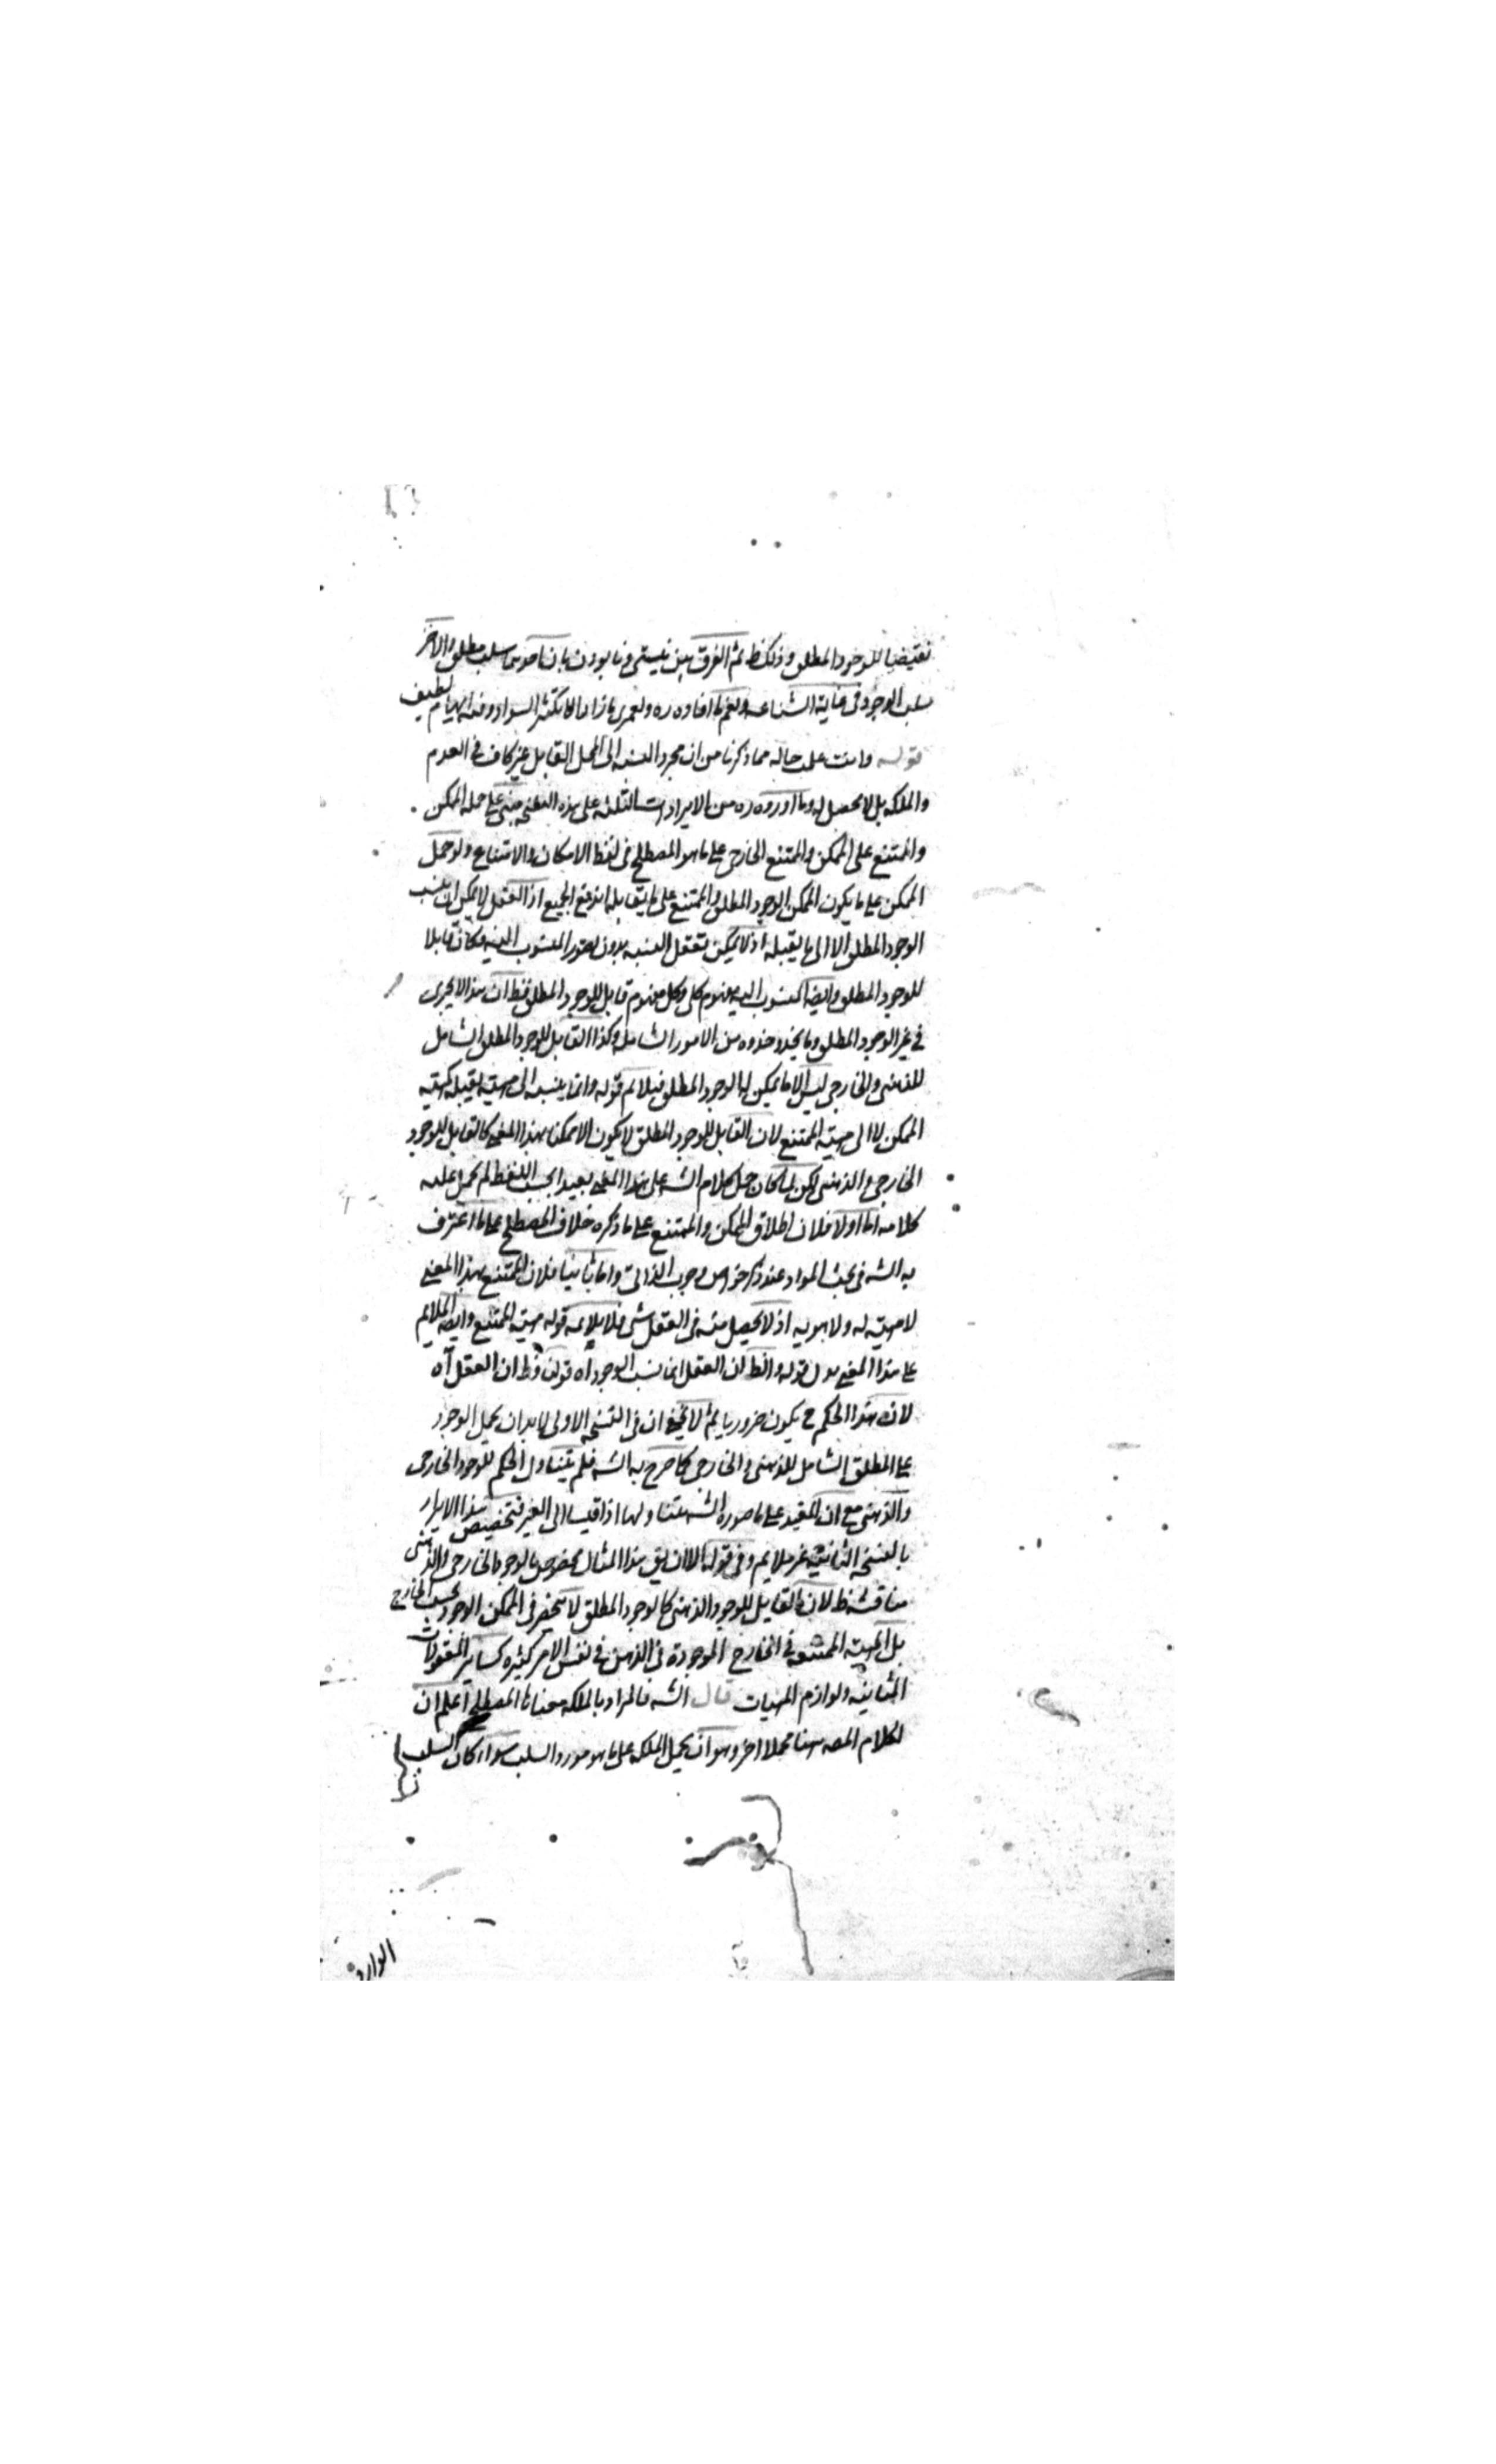 نقيضا للوجود المطلق وذلك ظ ثم الفرق بين نيستي ونابودن بان احدهما سلب مطلق والاخر
سلب الوجود في غاية الشناعه ولعمري ما زاد الا تكثير السواد وفيه ايهام لطيف
قوله وانت علمت حاله مما ذكرنا من ان مجرد النسبه الى المحل القابل غير كاف في العدم
والملكه بل لا محصل له وما اورده من الايرادات الثلثه على هذه النسخه مبنى على حمل الممكن
والممتنع على الممكن والممتنع الخارجى على ما هو المصطلح فى لفظ الامكان والامتناع ولو حمل
الممكن على ما يكون الممكن الوجود المطلق والممتنع على ما يقابله اندفع الجميع اذ العقل لا يمكن ان ينسب
الوجود المطلق الا الى ما يقبله اذ لا يمكن تعقل النسبه بدون تصور المنسوب اليه فكان قابلا
للوجود المطلق وايضا المنسوب اليه مفهوم كلى وكل مفهوم قابل للوجود المطلق فظ ان هذا لا يجرى
فى غير الوجود المطلق وما يحذو حذوه من الامور الشامله وكذا القابل للوجود المطلق الشامل
للذهنى والخارجى ليس الا ما يمكن له الوجود المطلق فيلائم قوله وانما ينسبه الى مهيه يقبله كمهيه
الممكن لا الى مهيه الممتنع لان القابل للوجود المطلق لا يكون الا ممكنا بهذا المعنى كالقابل للوجود
الخارجى والذهنى لكن لما كان حمل كلام الشه على هذا المعنى بعيدا بحسب اللفظ لم يحمل عليه
كلامه اما اولا فلان اطلاق الممكن والممتنع على ما ذكره خلاف المصطلح على ما اعترف
به الشه فى بحث المواد عند ذكر خواص وجوب الذاتى واما ثانيا فلان الممتنع بهذا المعنى
لا مهيه له ولا هويه اذ لا يحصل منه فى العقل شى فلا يلايمه قوله مهيه الممتنع وايضا الملايم
على هذا المعنى بدل قوله والظ ان العقل انما نسب الوجود اه قولنا وظ ان العقل اه
لان هذا الحكم ح يكون ضروريا ثم لا يخفى ان فى النسخه الاولى لا بد ان يحمل الوجود
على المطلق الشامل للذهنى والخارجى كما صرح به الشه فلم يتناول الحكم للوجود الخارجى
والذهنى مع ان المقيد على ما صوره الشه يتناولهما اذا قيسا الى الغير فتخصيص هذا الايراد
بالنسخه الثانيه غير ملايم وفى قوله الا ان يق هذا المثال مخصوص بالوجود الخارجى والذهنى
مناقشه ظ لان القابل للوجود الذهنى كالوجود المطلق لا ينحصر فى الممكن الوجود بحسب الخارج
بل المهيه الممتنعه فى الخارج الموجودة فى الذهن فى نفس الامر كثيره كساير المعقولات
الثانيه ولوازم المهيات قال الشه فالمراد بالملكه معناها المصطلح اعلم ان
لكلام المصه هنا محملا اخر وهو ان يحمل الملكه على ما هو مورد السلب سواء كان السلب
الوارد